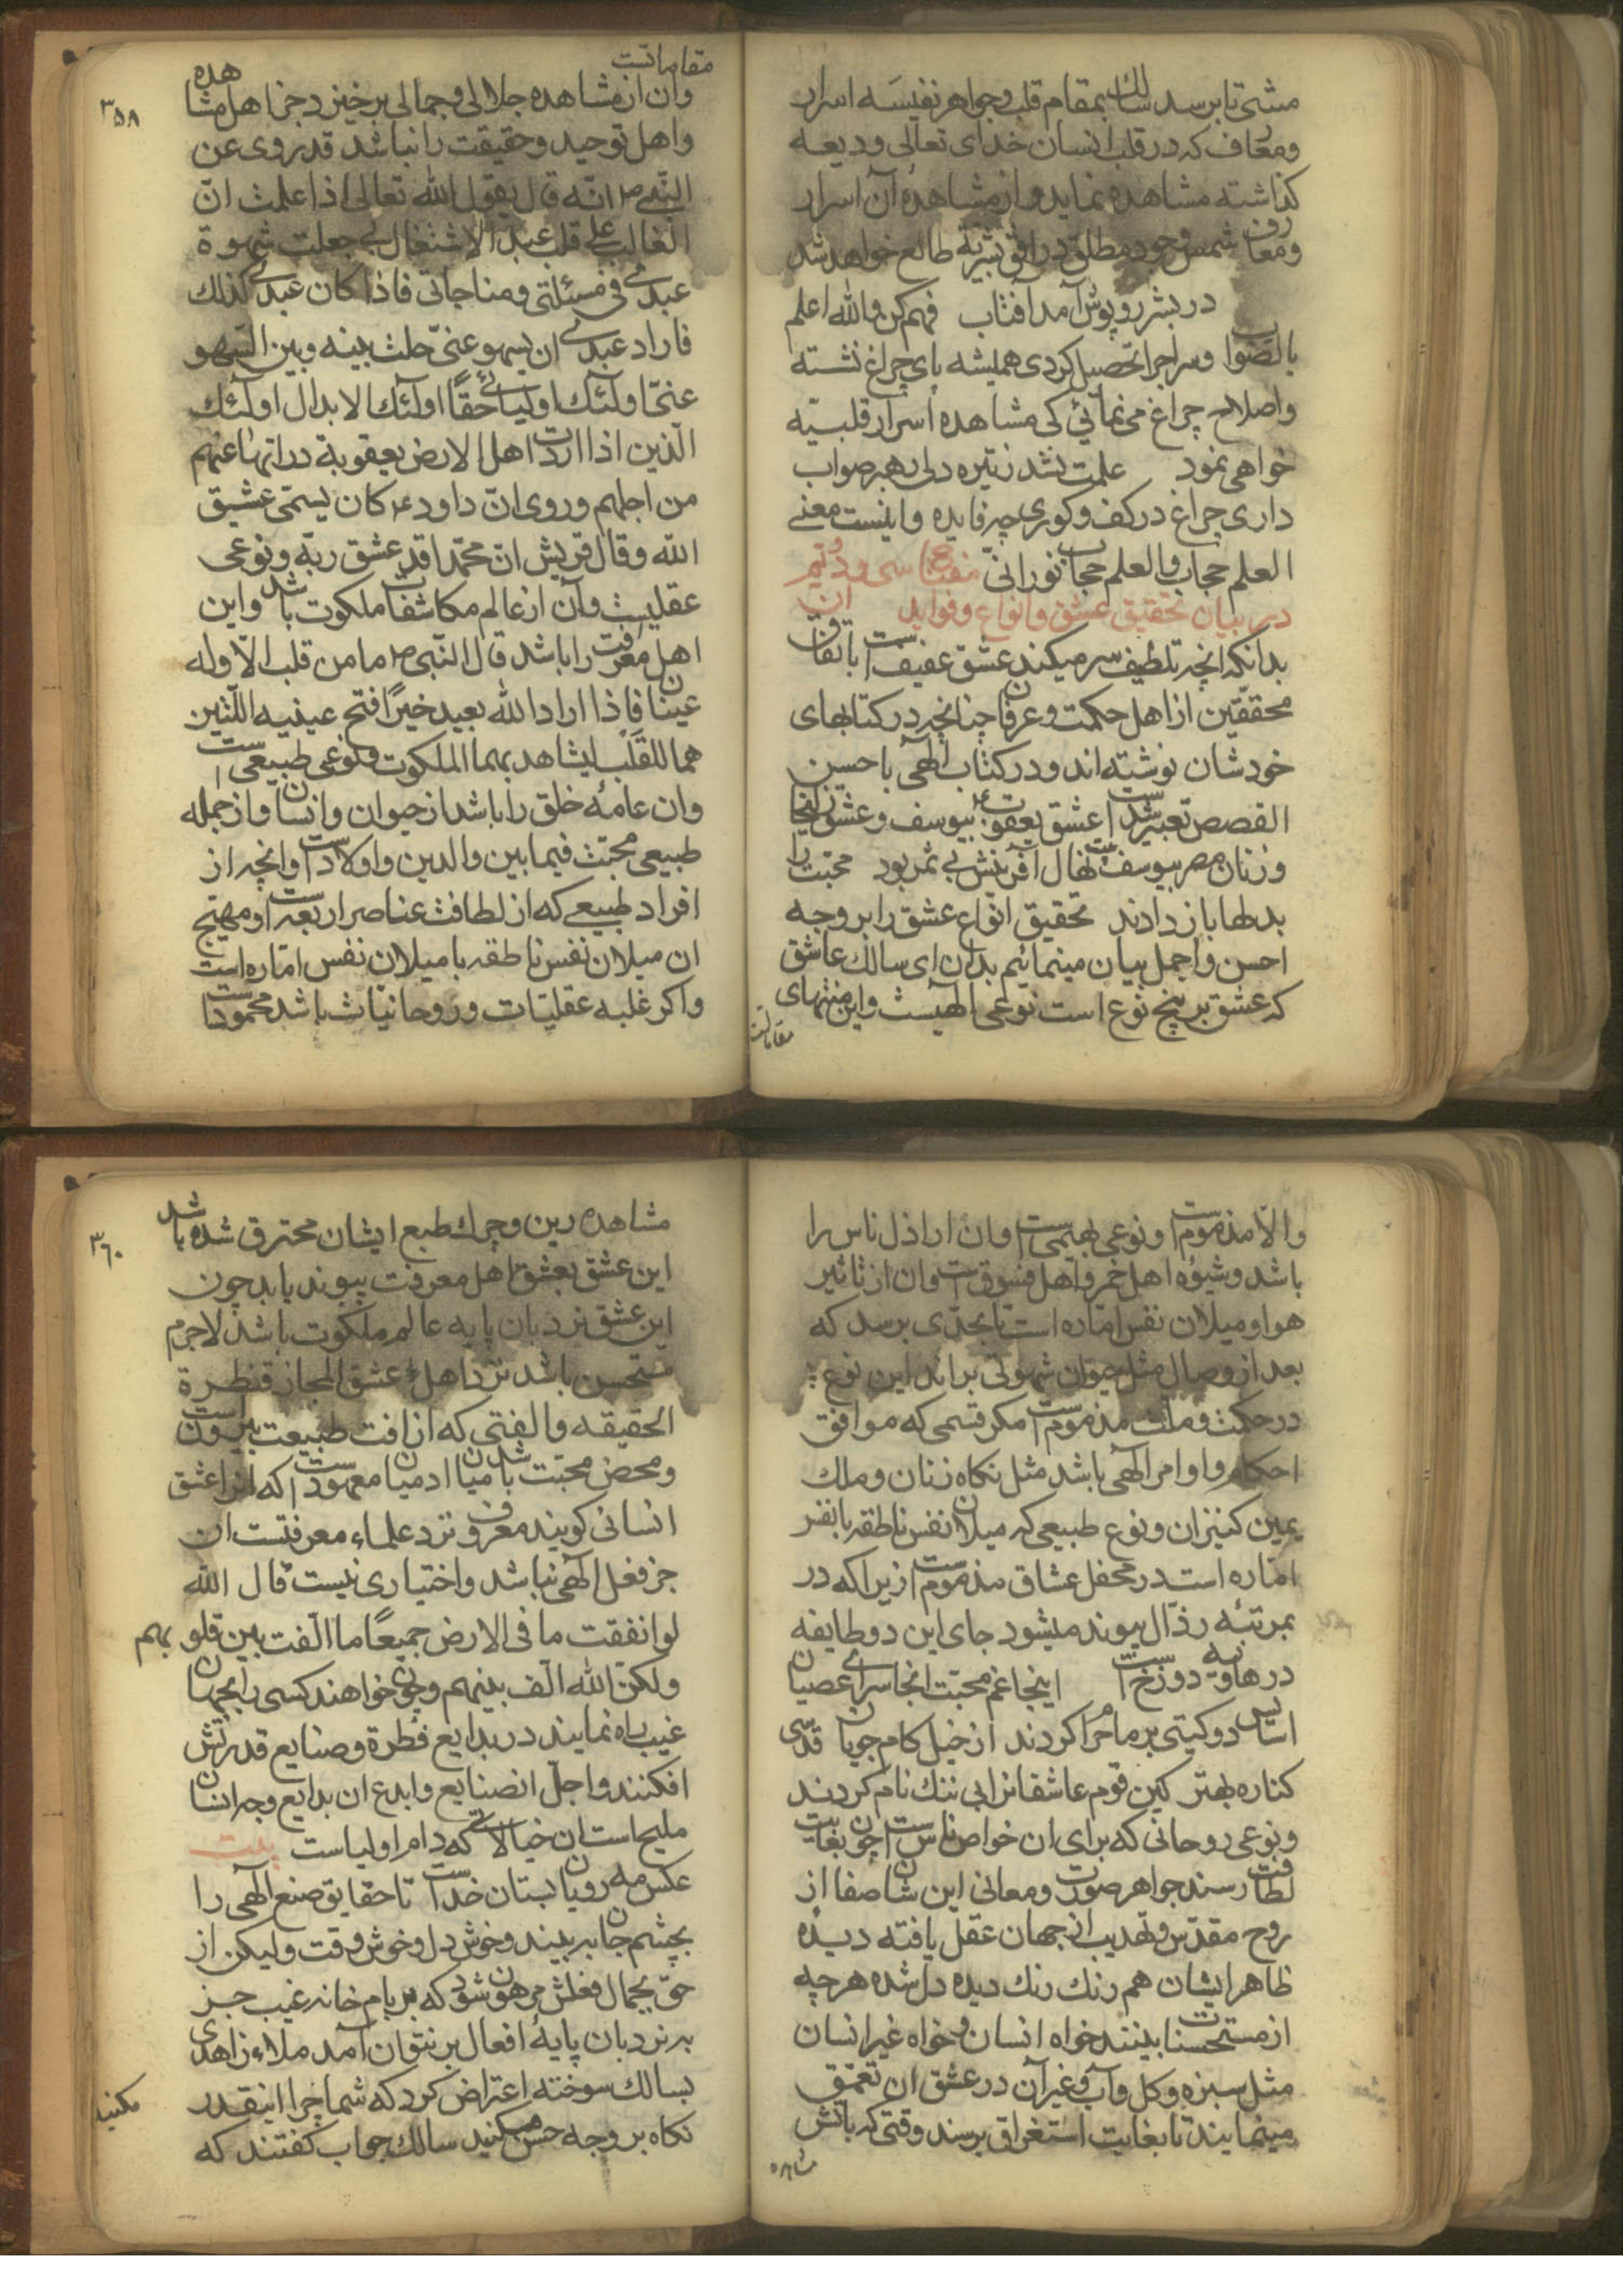 مشی تا برسد سالك بمقام قلب وجواهر نفیسه اسرار
ومعارف که در قلب انسان خدای تعالی ودیعه
کذاشته مشاهده نماید واز مشاهدهٔ آن اسرار
ومعارف شمس وجود مطلق در افق بشریّة طالع خواهد شد
در بشر روپوش آمد آفتاب فهم کن والله اعلم
بالصّواب وسراجرا تحصیل کردی همیشه پای چراغ نشسته
واصلاح چراغ می نمائی کی مشاهده اسرار قلبیّه
خواهی نمود علمت نشد زتیره دلی رهبر صواب
داری چراغ در کف وکوری چه فایده واینست معنی
العلم حجاب والعلم حجاب نورانی مفتاح سی ودویّم
در بیان تحقیق عشق وانواع وفواید ان
بدانکه انچه تلطیف سر میکند عشق عفیف است باتفاق
محققین از اهل حکمت وعرفان چنانچه در کتابهای
خودشان نوشته اند ودر کتاب الهی باحسن
القصص تعبیر شد است عشق یعقوب ع بیوسف وعشق زلیخا
وزنان مصر بیوسف بیت نهال آفرینش بی ثمر بود محبّت را
بدلها باز دادند تحقیق انواع عشق را بر وجه
احسن واجمل بیان مینمائیم بدان ای سالك عاشق
که عشق بر پنج نوع است نوعی الهیست واین منتهای
مقاماتست
مقاماتست
۳۵۸
وان از مشاهده جلالی وجمالی بر خیزد جز اهل مشاهده
واهل توحید وحقیقت را نباشد قد روی عن
النّبی ص انّه قال یقول الله تعالی اذا علمت انّ
الغالب علی قلب عبدی الاشتغال بی جعلت شهوة
عبدی فی مسئلتی ومناجاتی فاذا کان عبدی کذلك
فاراد عبدی ان یسهو عنّی حلت بینه وبین السّهو
عنّی اولٰئك اولیائی حقًّا اولٰئك الابدال اولٰئك
الّذین اذا اردت اهل الارض بعقوبة دراتها عنهم
من اجلهم وروی انّ داود ع کان یسمّی عشیق
الله وقال قریش انّ محمّدا قد عشق ربّه ونوعی
عقلیست وآن از عالم مکاشفات ملکوت باشد واین
اهل معرفت را باشد قال النّبی ص ما من قلب الّا وله
عینان فاذا اراد الله بعبد خیرًا فتح عینیه اللّتین
هما للقلب لیشاهد بهما الملکوت ونوعی طبیعی است
وان عامهٔ خلق را باشد از حیوان وانسان واز جمله
طبیعی محبّت فیما بین والدین واولاد است وانچه از
افراد طبیعی که از لطافت عناصر اربعه است ومهیّج
ان میلان نفس ناطقه با میلان نفس امّاره است
واکر غلبه عقلیّات وروحانیّات باشد محمود است
والّا مذموم است ونوعی بهیمی است وان اراذل ناس را
باشد وشیوهٔ اهل خمر واهل فسوق است وان از تاثیر
هوا ومیلان نفس امّاره است تا بحدّی برسد که
بعد از وصال مثل حیوان شهوتی براند این نوع
در حکمت وملّت مذموم است مکر قسمی که موافق
احکام واوامر الهی باشد مثل نکاه زنان وملك
یمین کنیزان ونوع طبیعی که میلان نفس ناطقه با نفس
امّاره است در محفل عشاق مذموم است زیرا که در
بمرتبهٔ رذّال پیوند میشود جای این دو طایفه
در هاویه دوزخ است اینجا غم محبّت انجا سرای عصیان
اساس دو کیتی بر ما حرام کردند از خیل کام جویان قدسی
کناره بهتر کین قوم عاشقانرا بی ننك نام کردند
ونوعی روحانی که برای ان خواص ناس است چون بغایت
لطافت رسند جواهر صورت ومعانی این شان صفا از
روح مقدّس وتهذیب از جهان عقل یافته دیده
ظاهر ایشان هم رنك رنك دیده دل شده هر چه
از مستحسنات بینند خواه انسان وخواه غیر انسان
مثل سبزه وکل وآب وغیر آن در عشق ان تعمّق
مینمایند تا بغایت استغراق برسند وقتی که باتش
مشاهده
۳۶۰
مشاهده رین وچرك طبع ایشان محترق شده باشد
این عشق بعشق اهل معرفت پیوند یابد چون
این عشق نردبان پایه عالم ملکوت باشد لاجرم
مستحسن باشد نزد اهل عشق المجاز قنطرة
الحقیقه والفتی که از افت طبیعت بیرون است
ومحض محبّت باشد میان ادمیان معهود است که انرا عشق
انسانی کویند معروف ونزد علماء معرفتست ان
جز فعل الهی نباشد واختیاری نیست قال الله
لو انفقت ما فی الارض جمیعًا ما الّفت بین قلوبهم
ولکنّ الله الّف بینهم وچون خواهند کسی را بجهان
غیب راه نمایند در بدایع فطرة وصنایع قدرتش
افکنند واجلّ انصنایع وابدع ان بدایع وجه انسان
ملیح است ان خیالاتی که دام اولیاست بیت
عکس مه رویان بستان خداست تا حقایق صنع الهی را
بچشم جان به بیند وخوش دل وخوش وقت ولیکن از
حقّ بجمال فعلش مرهون شود که بر بام خانه غیب جز
به نردبان پایهٔ افعال بر نتوان آمد ملاء زاهدی
بسالك سوخته اعتراض کرد که شما چرا اینقدر
نکاه بر وجه حسن میکنید سالك جواب کفتند که